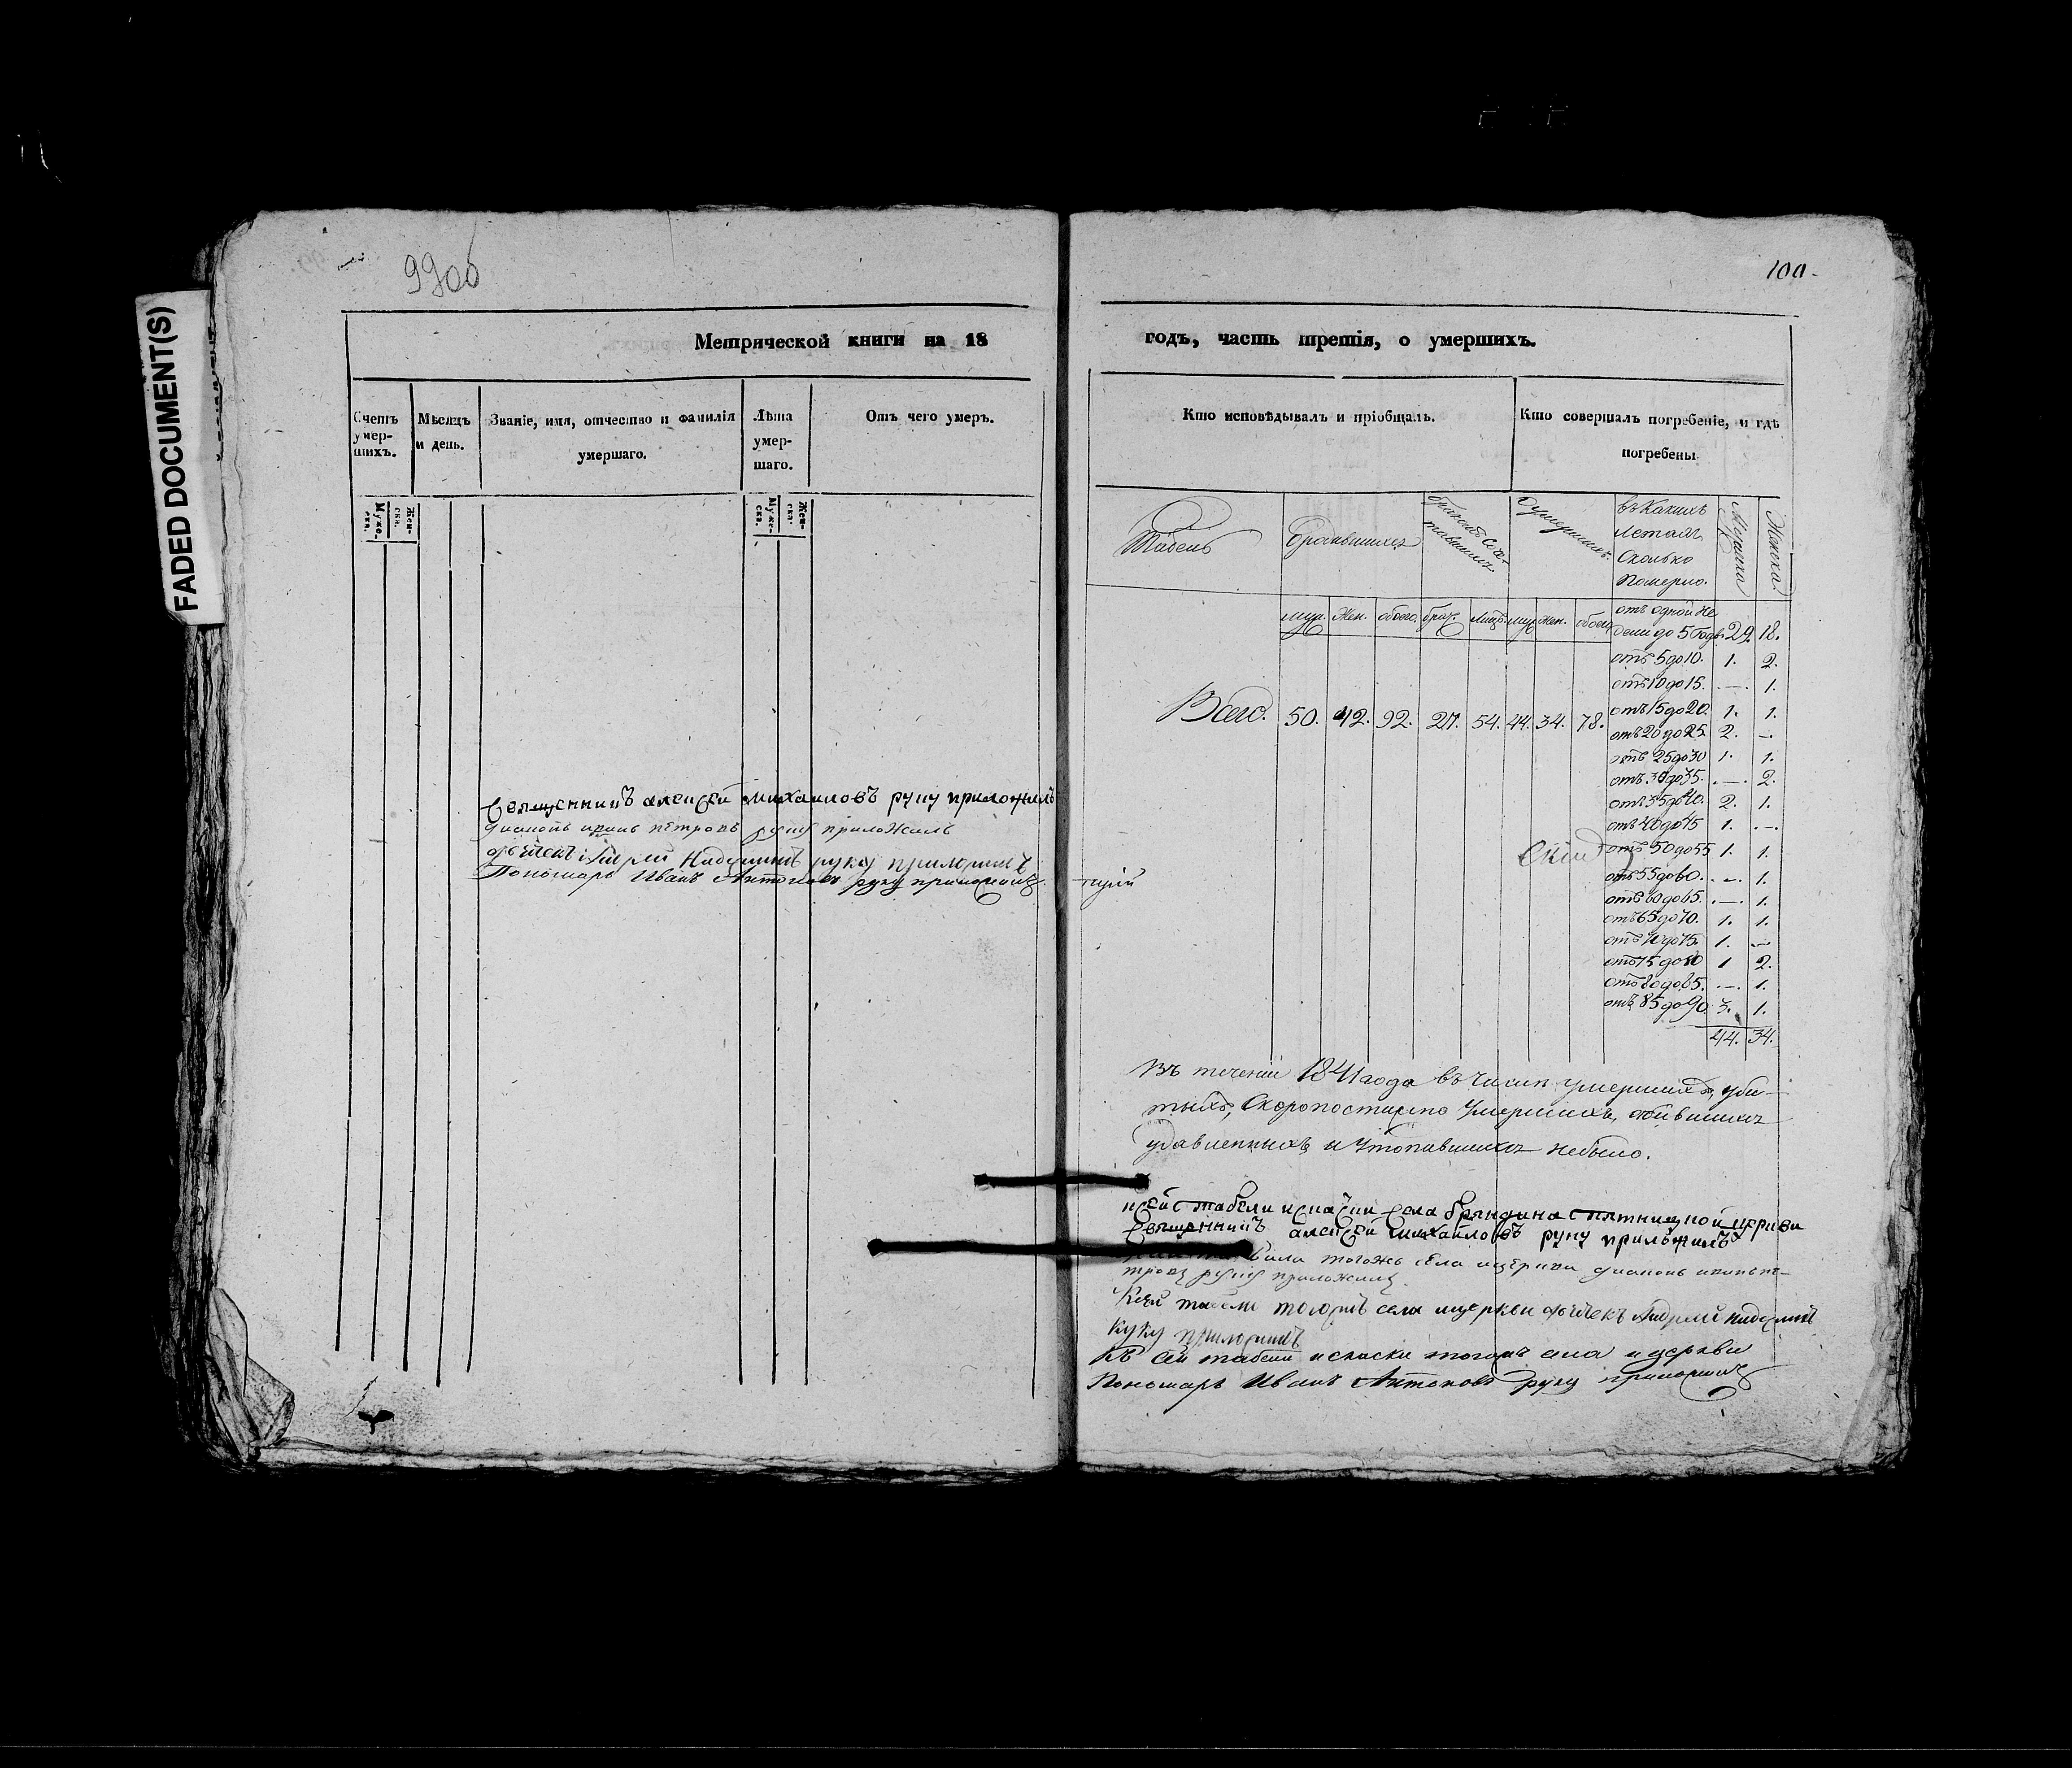 FADED DOCUMENT(S)
99об
Метрической книги на 18
Счетъ умер- шихъ.
Мѣсяцъ и день.
Званіе, имя, отчество и фамилія умершаго.
Лѣта умер- шаго.
Отъ чего умеръ.
Муже- ска.
Жен- ска.
Муже- ска.
Жен- ска.
Священникъ алексей михаиловъ руку приложилъ
диаконъ иванъ петровъ руку приложилъ
руку приложилъ
Пономарь Иванъ Антоновъ руку приложилъ
100.
годъ, часть третія, о умершихъ.
Кто исповѣдывалъ и пріобщалъ.
Кто совершалъ погребеніе, и гдѣ погребены
Табель
Родившихся
Бракомъ Соче- тавшихся
Умершихъ
въ Какихъ
Летахъ
Сколько
Померло.
Мужска
Женска
муж. Жен. обоего. брак. Лицъ. муж Жен. обоего
отъ одной не
дели до 5 Годъ. 29. 18.
отъ 5 до 10. 1. 2.
отъ 10 до 15. — 1.
отъ 15 до 20. 1. 1.
Всего. 50. 42. 92. 27. 54. 44. 34. 78.
отъ 20 до 25. 2. —
отъ 25 до 30 1. 1.
отъ 30 до 35. — 2.
отъ 35 до 40. 2. 1.
отъ 40 до 45 1. —
отъ 50 до 55 1. 1.
отъ 55 до 60. — 1.
отъ 60 до 65. — 1.
отъ 65 до 70. 1. 1.
отъ 70 до 75. 1. —
отъ 75 до 80 1 2.
отъ 80 до 85. — 1.
отъ 85 до 90 3. 1.
44. 34.
Въ течении 1841 года въ числе умершихъ, уби-
тыхъ, Скоропостижно Умершихъ,
удавленныхъ и Утопавшихъ небыло.
к сей табели и скаски села брындина пятницкой церкви
священникъ алексей михаиловъ руку приложилъ
тогожъ села и церкви диаконъ иванъ пе-
тровъ руку приложилъ
К сей табели тогожъ села и церкви
руку приложилъ
Къ сей табели и скаски тогожъ села и церкви
Пономарь Иванъ Антоновъ руку приложилъ